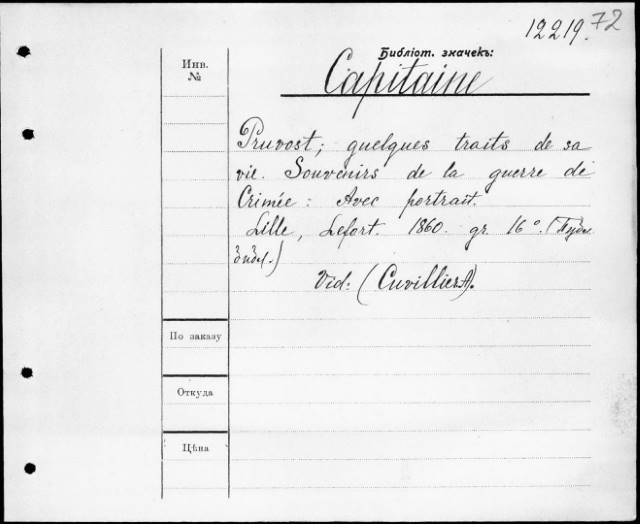 12219. 72
Библіот. значекъ:
Инв.
№
Capitaine
Pruvost; quelques traits de sa
vie. Souvenirs de la guerre de
Crimée: Avec portrait.
Lille, Lefort. 1860. gr. 16°.
Vid: (Cuvillier A).
По заказу
Откуда
Цѣна